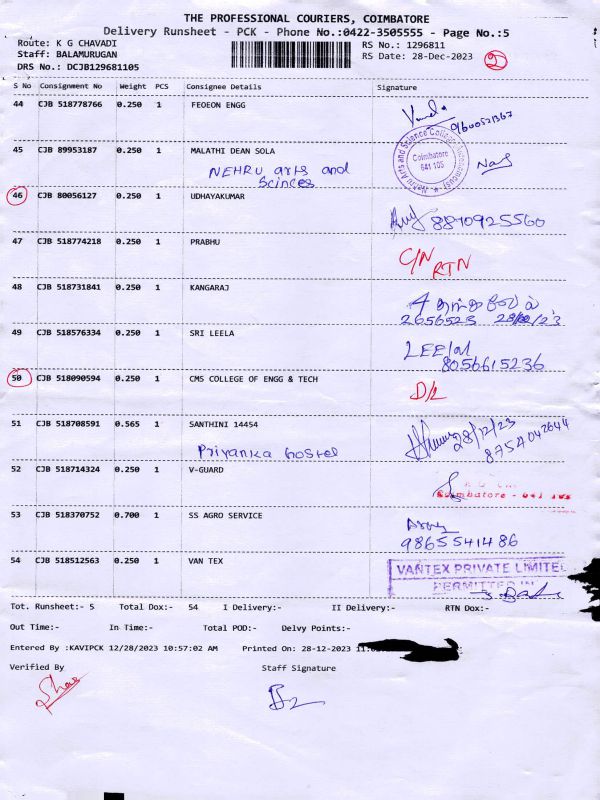 THE PROFESSIONAL COURIERS, COIMBATORE
Delivery Runsheet - PCK - Phone No.:0422-3505555 - Page No.:5
Route: K G CHAVADI
RS No.: 1296811
Staff: BALAMURUGAN
RS Date: 28-Dec-2023
2
DRS No.: DCJB129681105
S No Consignment No Weight PCS Consignee Details Signature
44 CJB 518778766 0.250 1 FEOEON ENGG
9600521367
45 CJB 89953187 0.250 1 MALATHI DEAN SOLA
NEHRU arts and
Scinces
Nehru Arts and Science College
Coimbatore
641 105
46 CJB 80056127 0.250 1 UDHAYAKUMAR
8870925560
47 CJB 518774218 0.250 1 PRABHU
C/N
RTN
48 CJB 518731841 0.250 1 KANGARAJ
2656523 28/12/23
49 CJB 518576334 0.250 1 SRI LEELA
8056615236
50 CJB 518090594 0.250 1 CMS COLLEGE OF ENGG & TECH
D/L
51 CJB 518708591 0.565 1 SANTHINI 14454
Priyanka hostel
28/12/23
8754042644
52 CJB 518714324 0.250 1 V-GUARD
Coimbatore - 641 105
53 CJB 518370752 0.700 1 SS AGRO SERVICE
9865541486
54 CJB 518512563 0.250 1 VAN TEX
VANTEX PRIVATE LIMITED
PERMITTED IN
Tot. Runsheet:- 5 Total Dox:- 54 I Delivery:- II Delivery:- RTN Dox:-
Out Time:- In Time:- Total POD:- Delvy Points:-
Entered By :KAVIPCK 12/28/2023 10:57:02 AM Printed On: 28-12-2023
Verified By Staff Signature